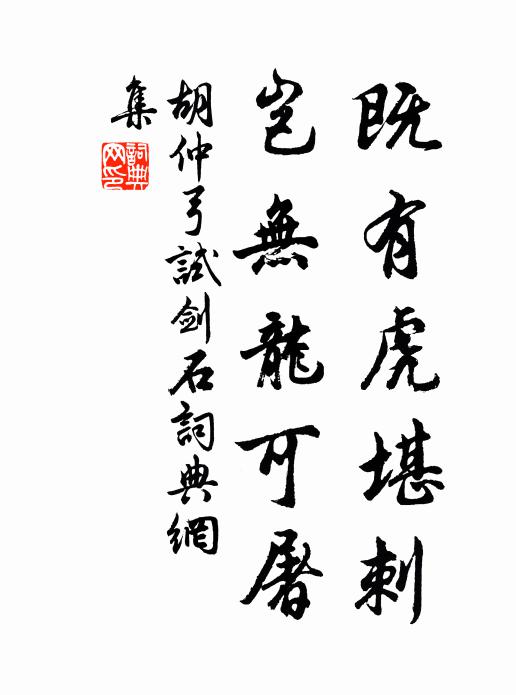 既有虎堪刺
豈無龍可屠
胡仲弓試劍石詞典網
集
詞典
网印